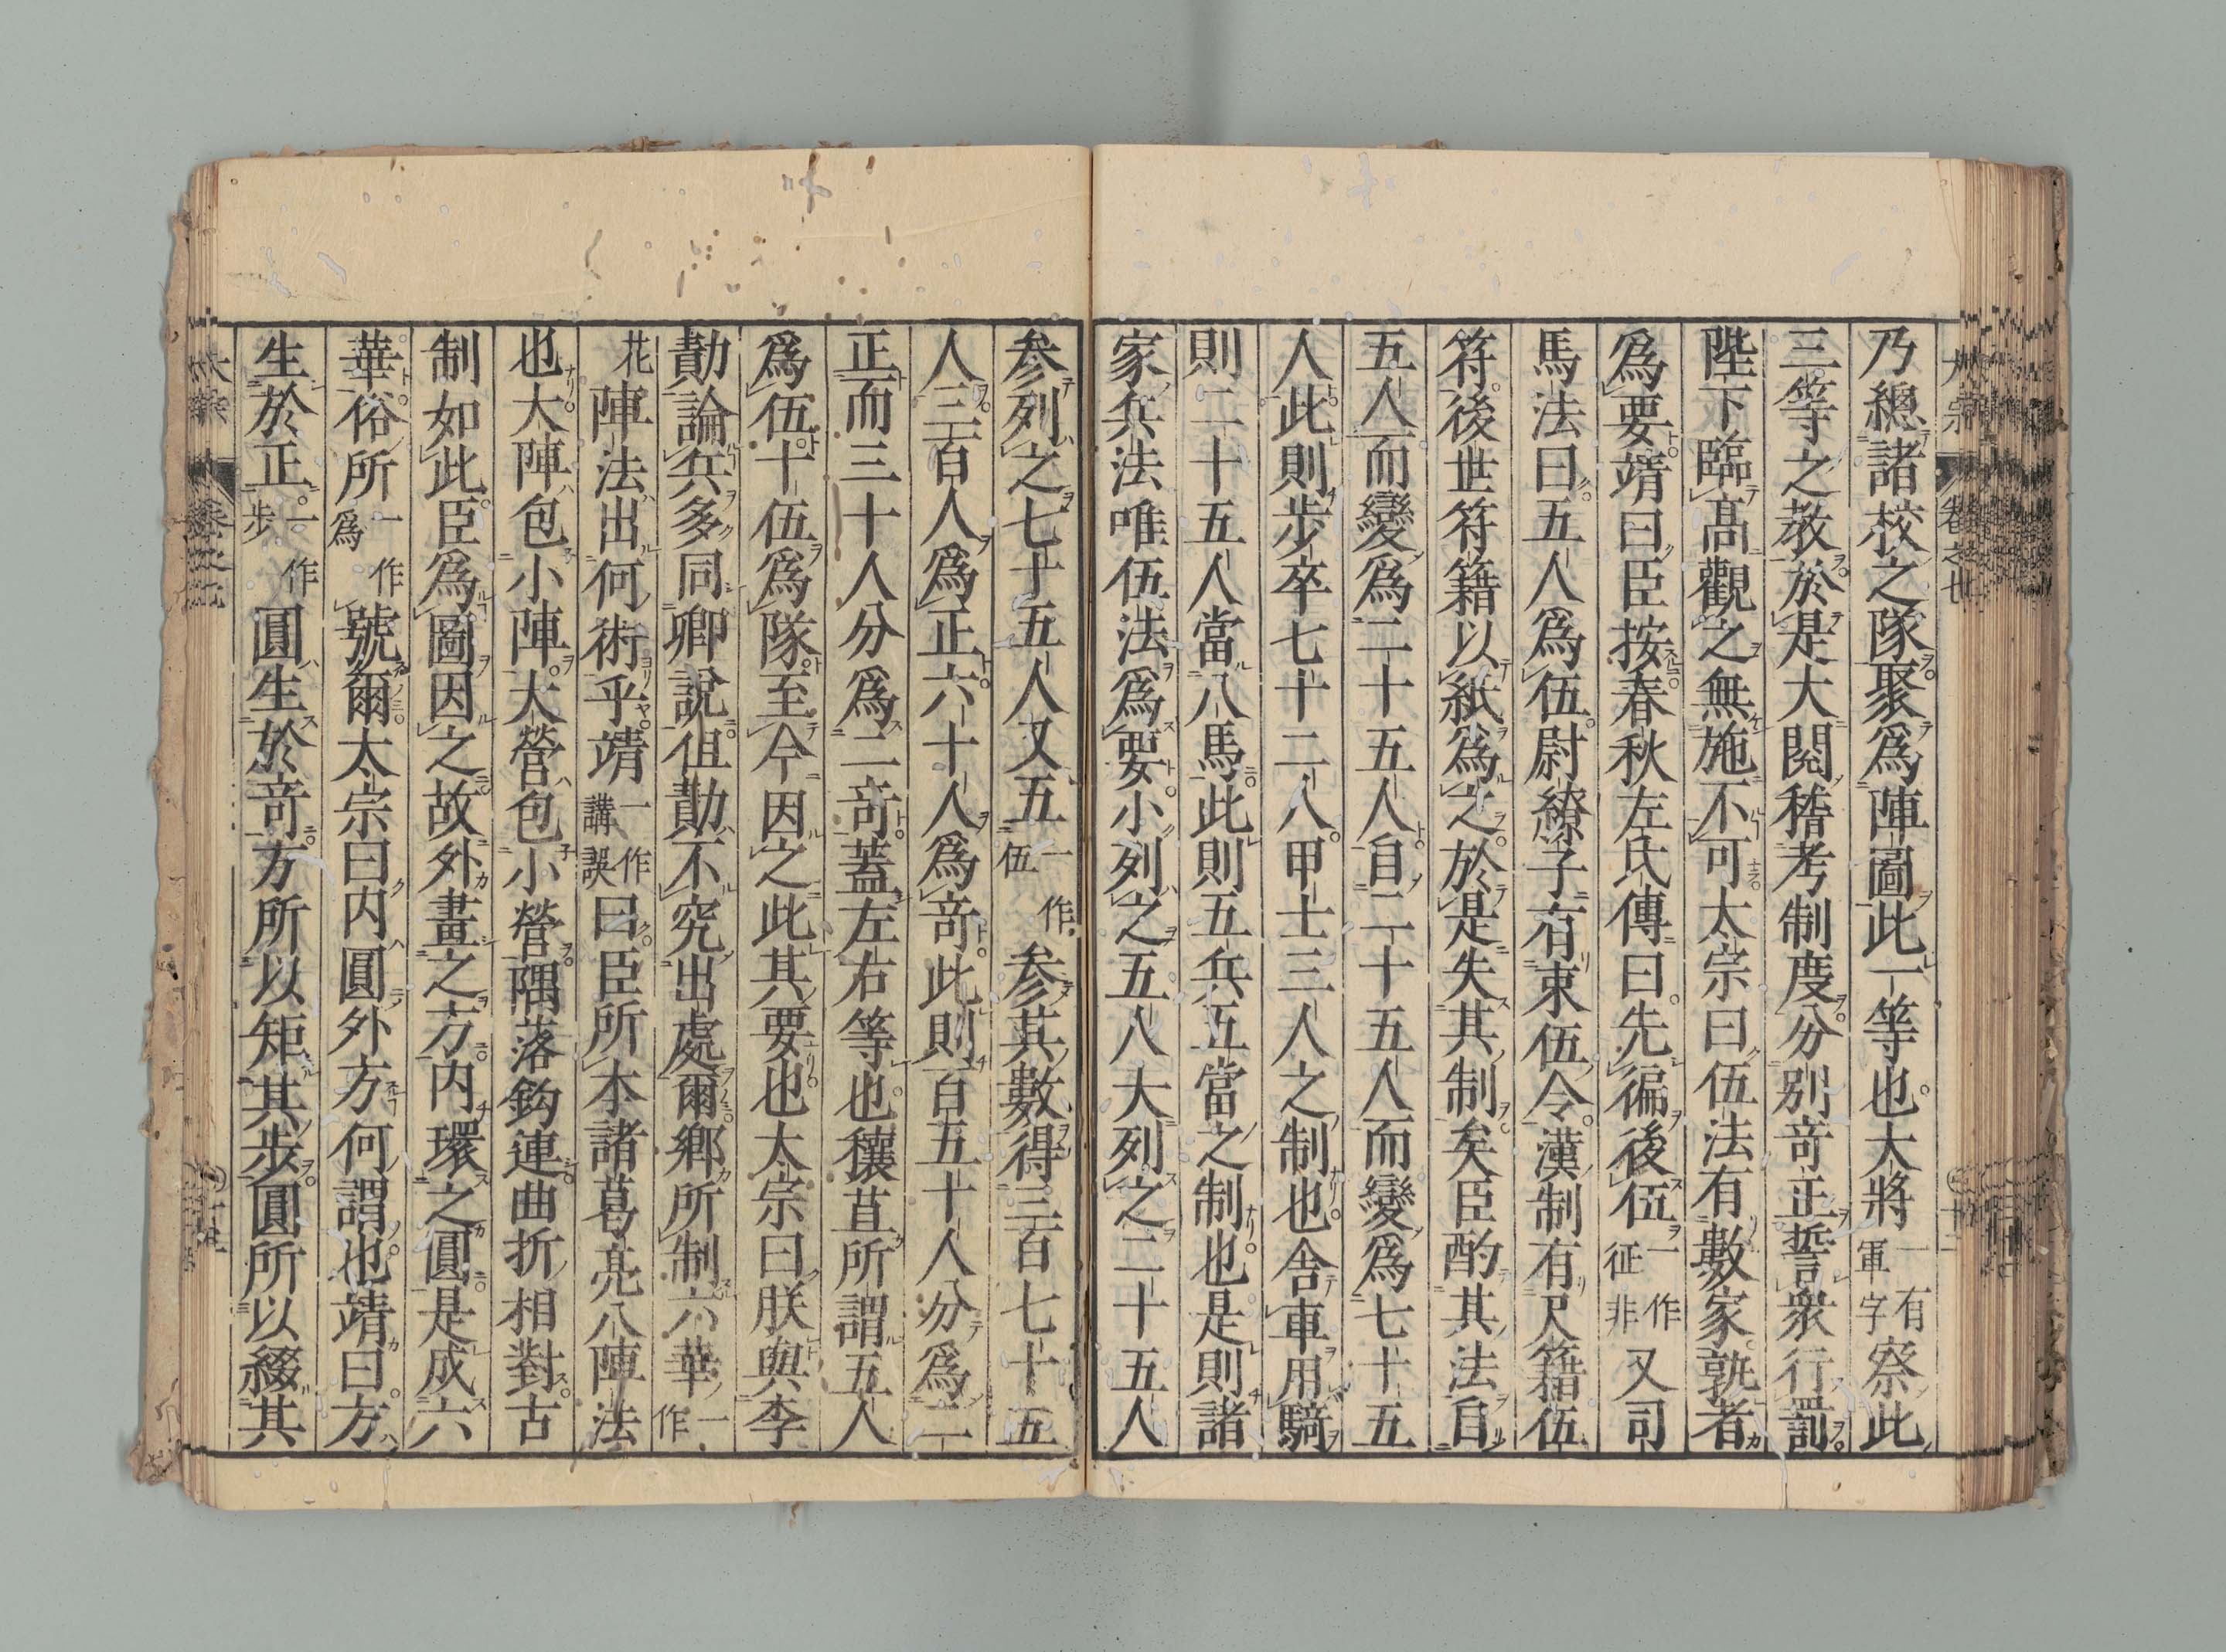 乃總諸校之隊聚爲陣圖此一等也大將一有軍字察此
三等之教於是大閱稽考制度分別竒正誓衆行罰
陛下臨髙觀之無施不可太宗曰伍法有數家孰者
爲要靖曰臣按春秋左氏傳曰先偏後伍一作征非又司
馬法曰五人爲伍尉繚子有束伍令漢制有尺籍伍
符後世符籍以紙爲之於是失其制矣臣酌其法自
五人而變爲二十五人自二十五人而變爲七十五
人此則步卒七十二人甲士三人之制也舍車用騎
則二十五人當八馬此則五兵五當之制也是則諸
家兵法唯伍法爲要小列之五人大列之二十五人
参列之七十五人又五一作伍参其數得三百七十五
人三百人爲正六十人爲竒此則百五十人分爲二
正而三十人分爲二竒蓋左右等也穰苴所謂五人
爲伍十伍爲隊至今因之此其要也太宗曰朕與李
勣論兵多同卿說但勣不究出處爾鄉所制六華一作
花陣法出何術乎靖一作講誤曰臣所本諸葛亮八陣法
也大陣包小陣大營包小營隅落鈎連曲折相對古
制如此臣爲圖因之故外畫之方内環之圓是成六
華俗所一作爲號爾太宗曰内圓外方何謂也靖曰方
生於正一作步圓生於竒方所以矩其步圓所以綴其